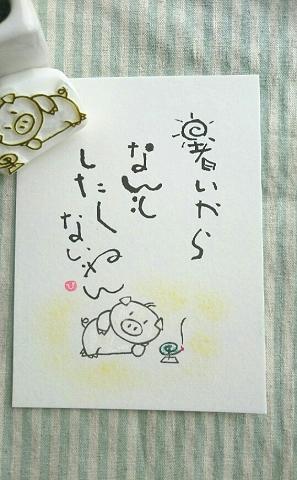 暑いから
なんも
したく
ないねん